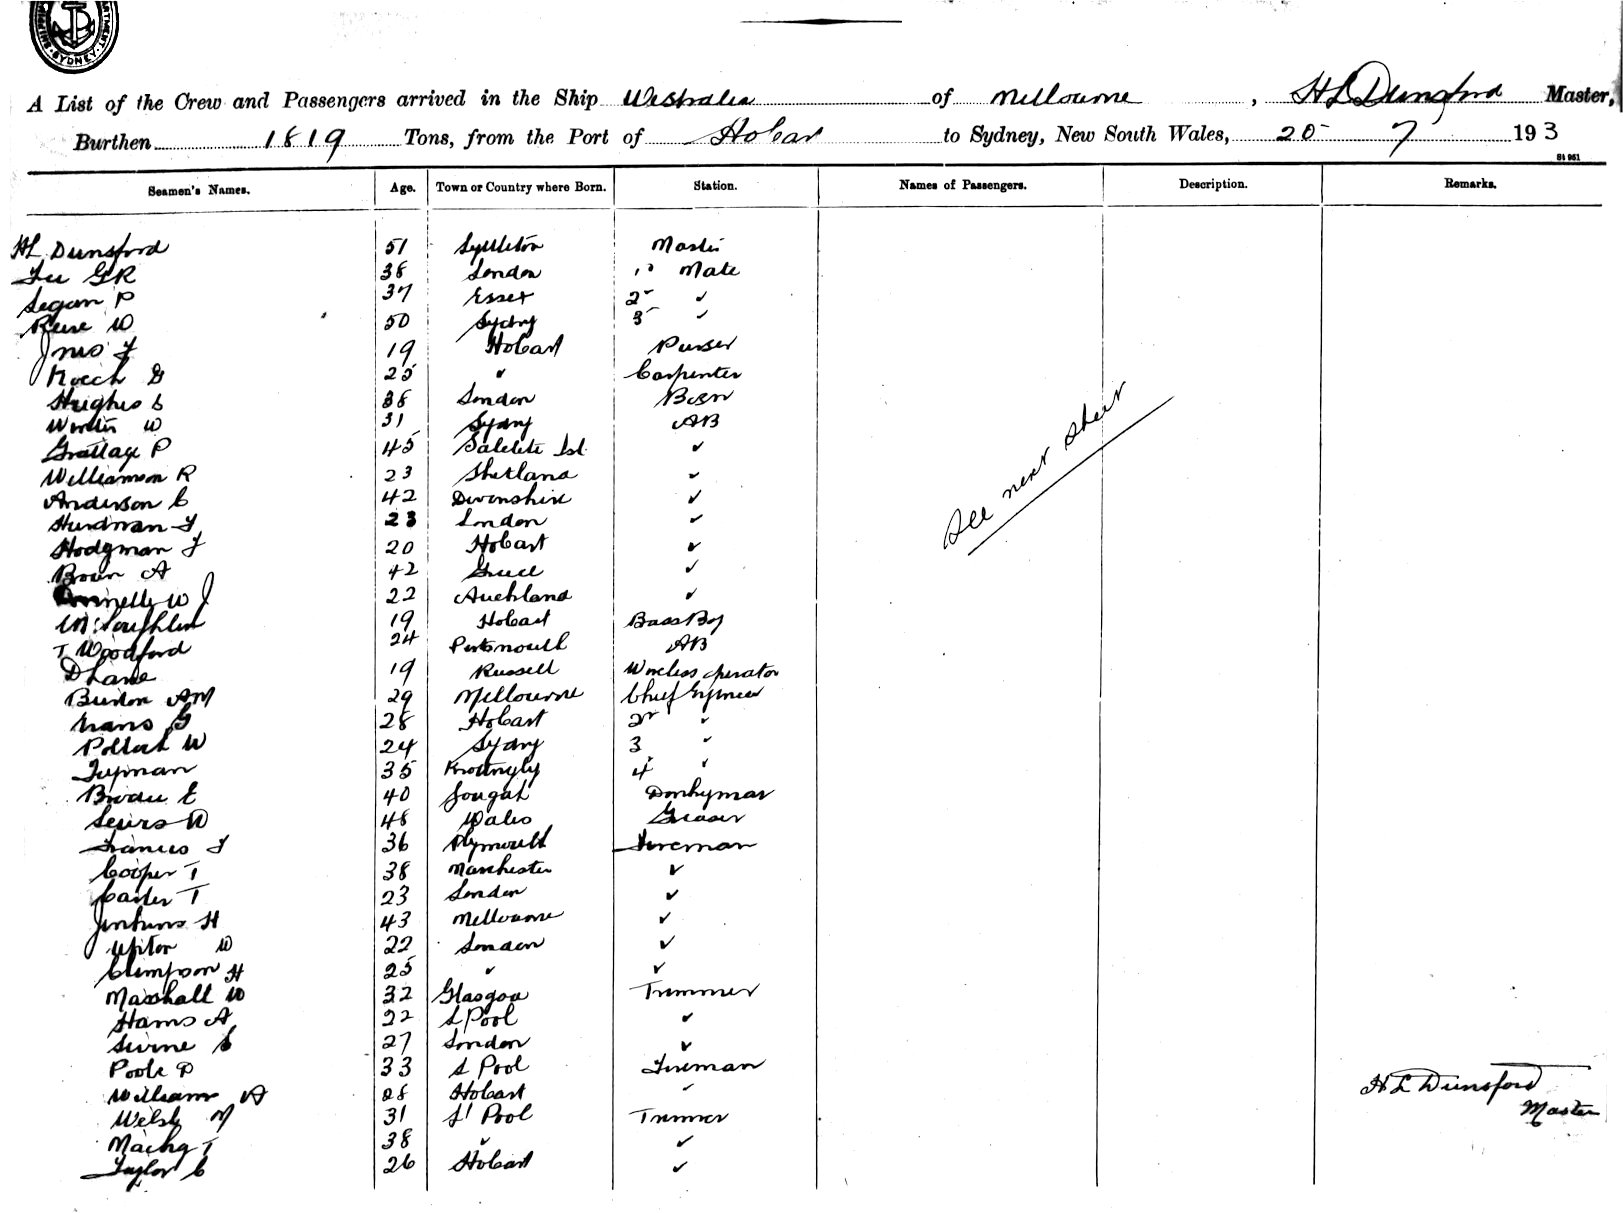 SYDNEY
A List of the Crew and Passengers arrived in the Ship Westralia of Melbourne, H L Dunsford Master,
Burthen 1819 Tons, from the Port of Hobart to Sydney, New South Wales, 25 7 193
St 961
Seamen's Names. Age. Town or Country where Born. Station. Names of Passengers. Description. Remarks.
HL Dunsford 51 Lyttleton Master
G R 38 London 1st Mate
P 37 Essex 2nd ✓
W 50 Sydney 3 ✓
Jones F 19 Hobart Purser
25 " Carpenter
Hughes 38 London Bosn
W 31 Sydney AB
Grattage P 45 Isl ✓
Williamson R 23 Shetland ✓
Anderson C 42 Devonshire ✓
Hurdman F 23 London ✓
Hodgman F 20 Hobart ✓
A 42 Greece ✓
W J 22 Auckland ✓
McLoughlin 19 Hobart Boy
T Woodford 24 Portsmouth AB
D Lane 19 Russell Wireless operator
Burton AM 29 Melbourne Chief Engineer
Evans G 28 Hobart 2nd "
Pollock W 24 Sydney 3 "
Tupman 35 4 "
E 40 Donkyman
W 48 Wales Greaser
Francis F 36 Plymouth Fireman
Cooper T 38 Manchester ✓
Carter T 23 London ✓
Jenkins H 43 Melbourne ✓
Upton W 22 London ✓
Climpson H 25 " ✓
Marshall W 32 Glasgow Trimmer
Harris A 22 L Pool ✓
27 London ✓
Poole P 33 L Pool Fireman
Williams A 28 Hobart ✓
Welsh M 31 L Pool Trimmer
T 38 " ✓
Taylor C 26 Hobart ✓
See next sheet
H L Dunsford
Master